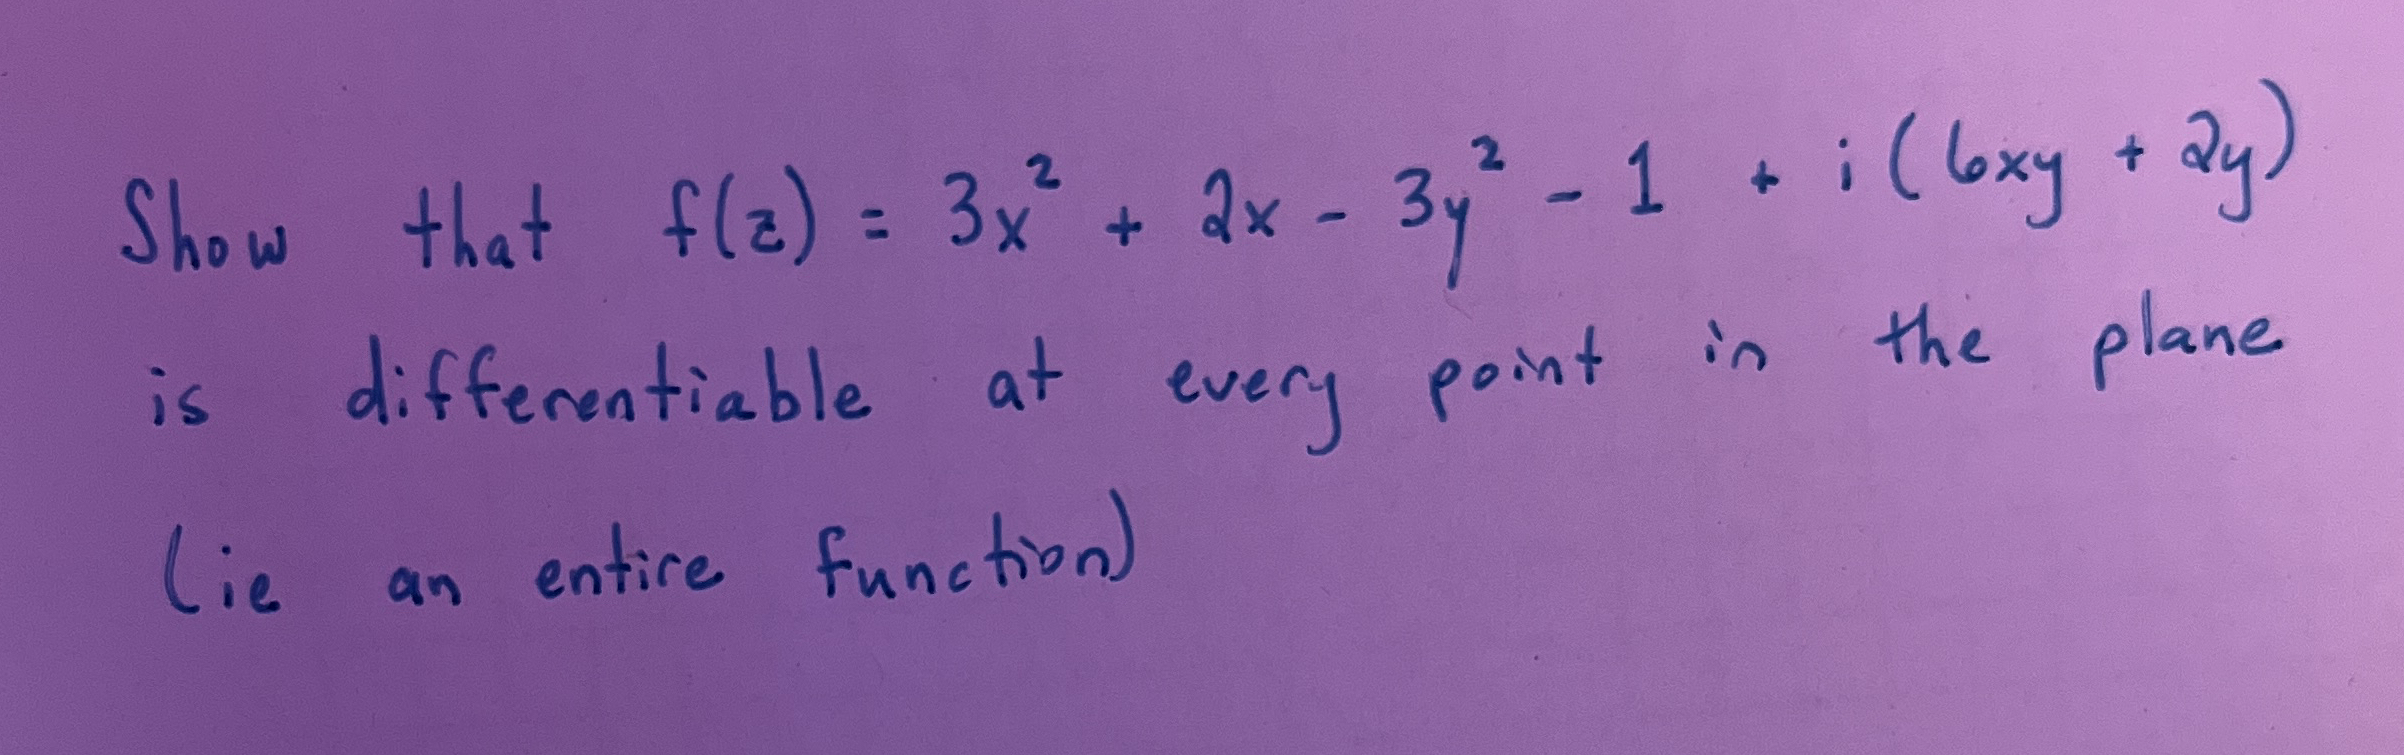 Show that f(z) = 3x² + 2x - 3y² - 1 + i(6xy + 2y)
is differentiable at every point in the plane
(ie an entire function)